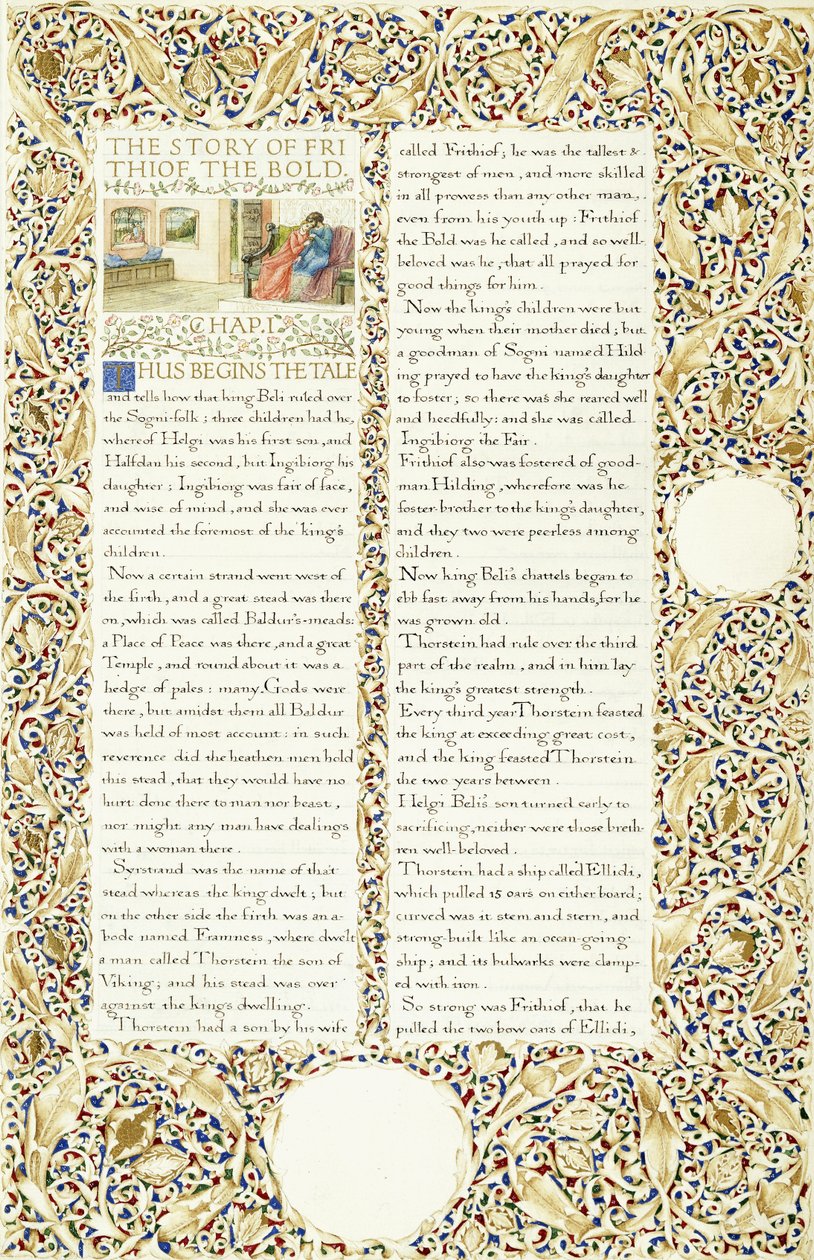 THE STORY OF FRI
THIOF THE BOLD.
CHAP. I.
THUS BEGINS THE TALE
and tells how that king Beli ruled over
the Sogni-folk; three children had he,
whereof Helgi was his first son, and
Halfdan his second, but Ingibiorg his
daughter; Ingibiorg was fair of face,
and wise of mind, and she was ever
accounted the foremost of the king's
children.
Now a certain strand went west of
the firth, and a great stead was there
on, which was called Baldur's-meads:
a Place of Peace was there, and a great
Temple, and round about it was a
hedge of pales: many Gods were
there, but amidst them all Baldur
was held of most account: in such
reverence did the heathen men hold
this stead, that they would have no
hurt done there to man nor beast,
nor might any man have dealings
with a woman there.
Syrstrand was the name of that
stead whereas the king dwelt; but
on the other side the firth was an a-
bode named Framness, where dwelt
a man called Thorstein the son of
Viking; and his stead was over
against the king's dwelling.
Thorstein had a son by his wife
called Frithiof; he was the tallest &
strongest of men, and more skilled
in all prowess than any other man,
even from his youth up. Frithiof
the Bold was he called, and so well-
beloved was he, that all prayed for
good things for him.
Now the king's children were but
young when their mother died; but
a goodman of Sogni named Hild-
ing prayed to have the king's daughter
to foster; so there was she reared well
and heedfully: and she was called
Ingibiorg the Fair.
Frithiof also was fostered of good-
man Hilding, wherefore was he
foster-brother to the king's daughter,
and they two were peerless among
children.
Now king Beli's chattels began to
ebb fast away from his hands, for he
was grown old.
Thorstein had rule over the third
part of the realm, and in him lay
the king's greatest strength.
Every third year Thorstein feasted
the king at exceeding great cost,
and the king feasted Thorstein
the two years between.
Helgi Beli's son turned early to
sacrificing, neither were those breth-
ren well-beloved.
Thorstein had a ship called Ellidi,
which pulled 15 oars on either board;
curved was it stem and stern, and
strong-built like an ocean-going
ship; and its bulwarks were clamp-
ed with iron.
So strong was Frithiof, that he
pulled the two bow oars of Ellidi,